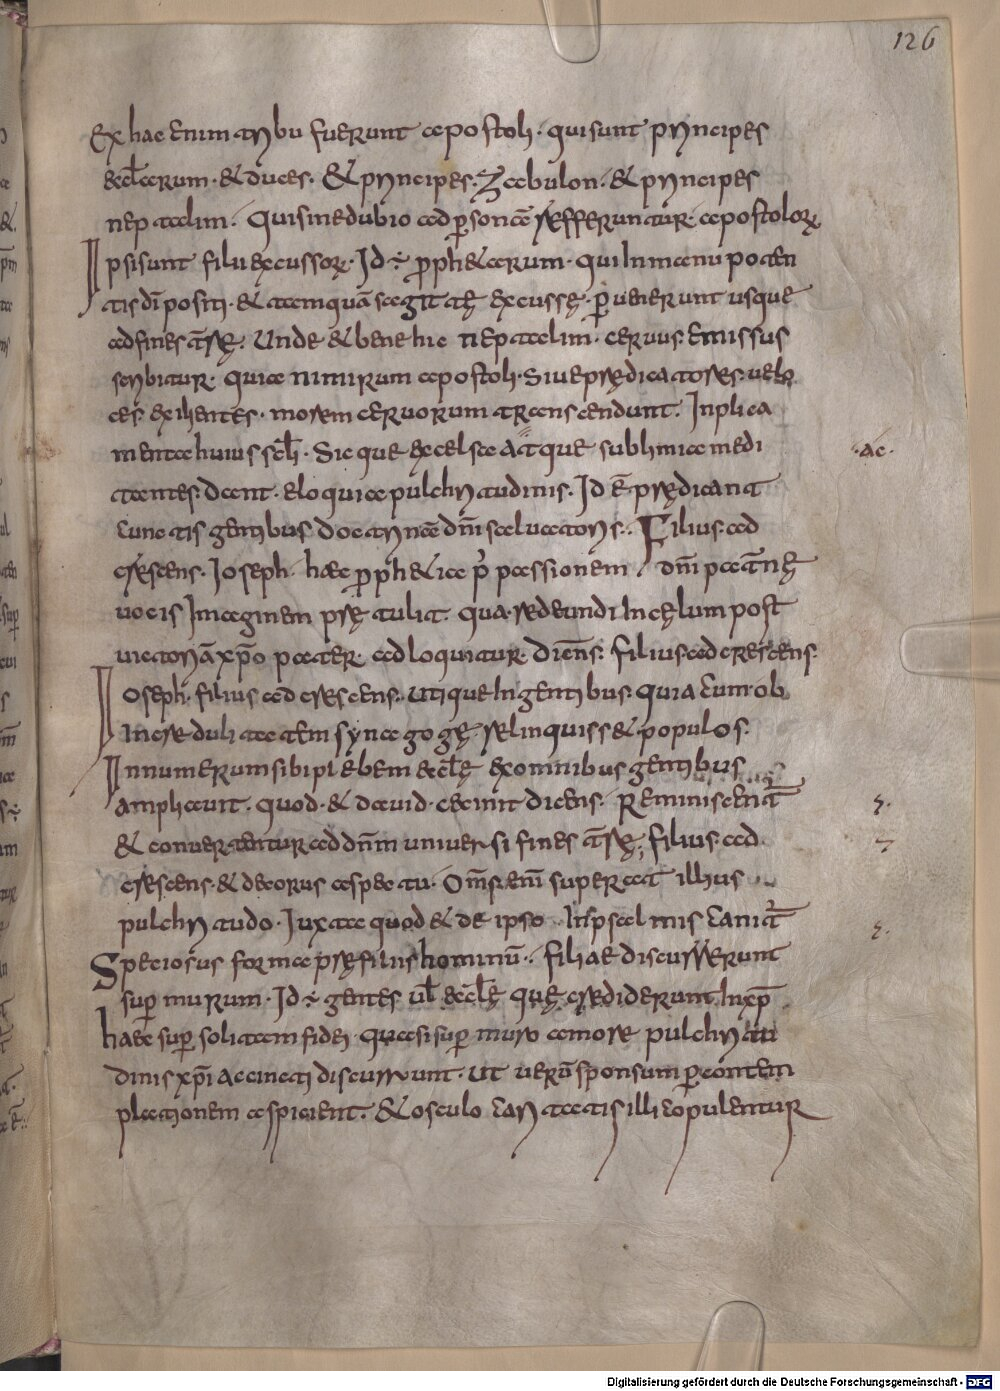 126
Ex hac enim tribu fuerunt apostoli · qui sunt principes
&cl̅arum · & duces · & principes · Zabulon · & principes
neptalim · Quisinedubio ad ꝑsonã refferuntur apostoloꝝ
Ipsi sunt filii excussoꝝ · Id ÷ ꝓph&arum · Qui In manu poten
tis dī positi · & tamquã sagittę excussę · ꝑuenerunt usque
ad fines t̄rę · Unde & bene hic neptalim · ceruus emissus
scribitur · quia nimirum apostoli · Siue prędicatores · uelo
ces exilientes · morem ceruorum transcendunt · Inplica
menta huius sc̄li · Sic que excelsa atque sublimia medi
tantes · Dant · eloquia pulchritudinis · Id ē prędicant
cunctis gentibus doctrinã dn̄i saluatoris · Filius ad
crescens · Ioseph · hac ꝓph&ia p̓ passionem dn̄i patęrnę
uocis Imaginem prętulit · qua redeundi In cęlum post
uictoriã xp̄o pater · adloquitur · Diēns · filius adcrescens ·
Ioseph · filius adcrescens · utique In gentibus · quia cum ob
Incredulitatem synagogę · relinquiss& populos ·
Innumerum sibi plebem &cl̄ę ex omnibus gentibus
ampliauit · quod · & dauid · cecinit dicens · Reminiscent̓
& conuertentur ad dn̄m uniuersi fines t̄rę; filius ad
crescens · & decorus aspectu · Om̄s enī superat illius
pulchritudo · Iuxta quod & de ipso In psalmis canit̓
Speciosus forma prę filiis hominū · filiae discurrerunt
suꝑ murum · Id ÷ gentes ul̄ &cl̄ę quę crediderunt In xp̄
haec suꝑ soliatem fidei · quasi suꝑ muro amore pulchritu
dinis xp̄i accincti discurrunt · ut uerū sponsum ꝑ contem
plationem aspicient · & osculo caritatis illi copulentur
·ac·
Digitalisierung gefördert durch die Deutsche Forschungsgemeinschaft - DFG